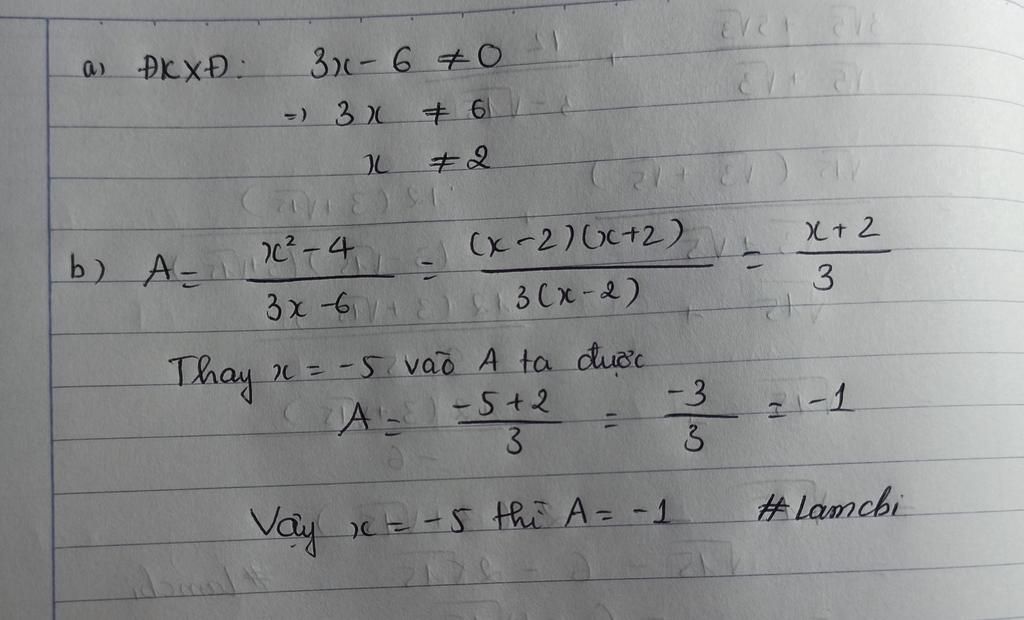 a) ĐKXĐ: 3x - 6 ≠ 0
=> 3x ≠ 6
x ≠ 2
b) A = (x² - 4)/(3x - 6) = ((x - 2)(x + 2))/(3(x - 2)) = (x + 2)/3
Thay x = -5 vào A ta được
A = (-5 + 2)/3 = (-3)/3 = -1
Vậy x = -5 thì A = -1 #lamchi